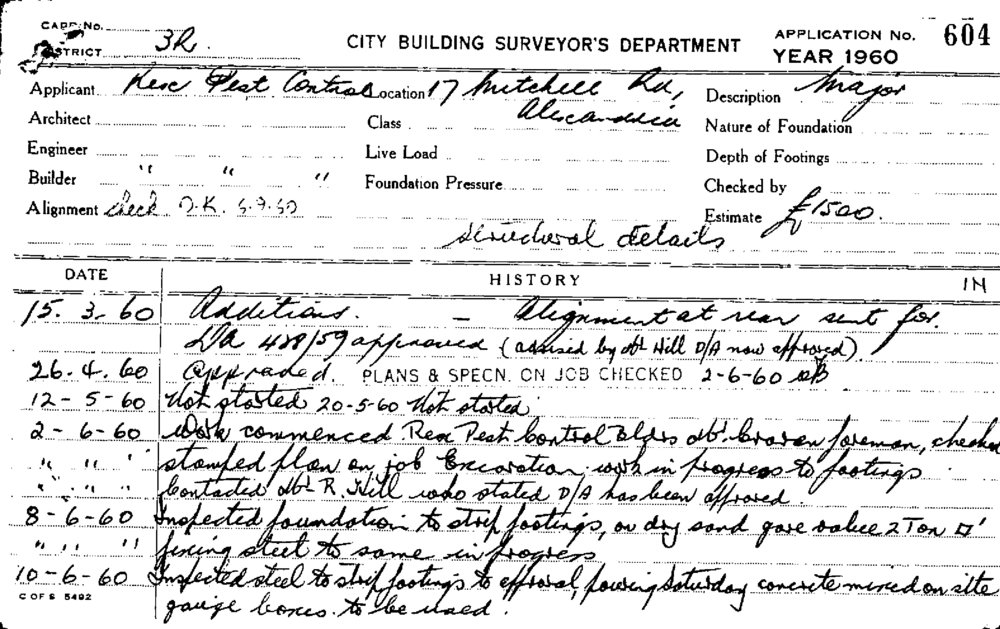 CARD No.
DISTRICT 3R.
CITY BUILDING SURVEYOR'S DEPARTMENT
APPLICATION No. 604
YEAR 1960
Applicant Rex Pest Control Location 17 Mitchell Rd, Description Major
Architect Class Alexandria Nature of Foundation
Engineer Live Load Depth of Footings
Builder " " " Foundation Pressure Checked by
Alignment check O.K. 6.9.60 Estimate £1500.
structural details
DATE HISTORY IN
15. 3. 60 Additions. – Alignment at rear sent for.
DA 488/59 approved (advised by Mr Hill D/A now approved).
26. 4. 60 PLANS & SPECN. ON JOB CHECKED 2-6-60
12-5-60 Not started 20-5-60 Not started
2-6-60 Work commenced Rex Pest Control Bldrs Mr. Craven foreman, checked
" " " stamped plan on job Excavation work in progress to footings
" " " Contacted Mr R. Hill who stated D/A has been approved.
8-6-60 Inspected foundation to strip footings, on dry sand gave value 2 Ton □'
" " " fixing steel to same in progress
10-6-60 Inspected steel to strip footings to approval, pouring Saturday concrete mixed on site
C OF S 5492
gauge boxes to be used.